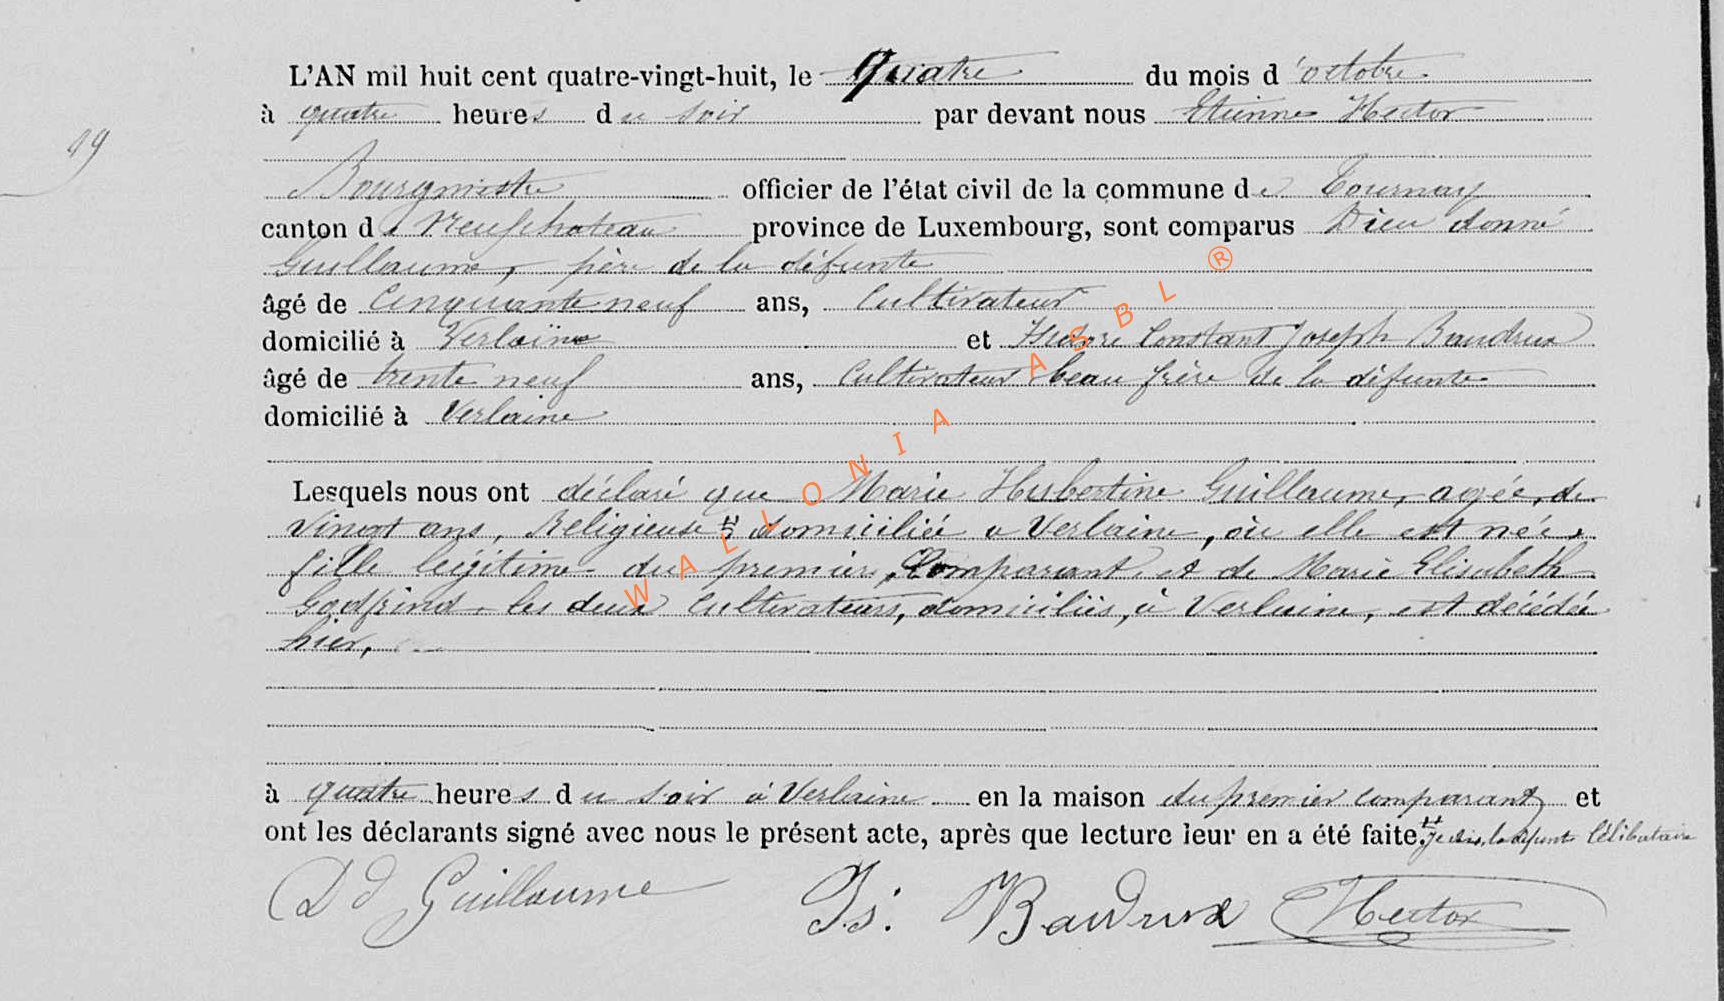 L'AN mil huit cent quatre-vingt-huit, le Quatre du mois d'octobre
à quatre heures du soir par devant nous Etienne Hector
19
Bourgmestre officier de l'état civil de la commune de Tournay
canton de Neufchateau province de Luxembourg, sont comparus Dieudonné
Guillaume, père de la défunte
âgé de Cinquante neuf ans, Cultivateur
domicilié à Verlaine et Constant Joseph Baudrux
âgé de trente neuf ans, Cultivateur beau frère de la défunte
domicilié à Verlaine
Lesquels nous ont déclaré que Marie Hubertine Guillaume, agée, de
Vingt ans, Religieuse domiciliée a Verlaine, où elle est née,
fille légitime du premier, Comparant, et de Marie Elisabeth
Godfrind, les deux Cultivateurs, domiciliés, à Verlaine, est décédée
hier,
à quatre heures du soir à Verlaine en la maison du premier comparant et
ont les déclarants signé avec nous le présent acte, après que lecture leur en a été faite. Célibataire
Dd Guillaume Is. Baudrux Hector
WALLONIA ASBL ®